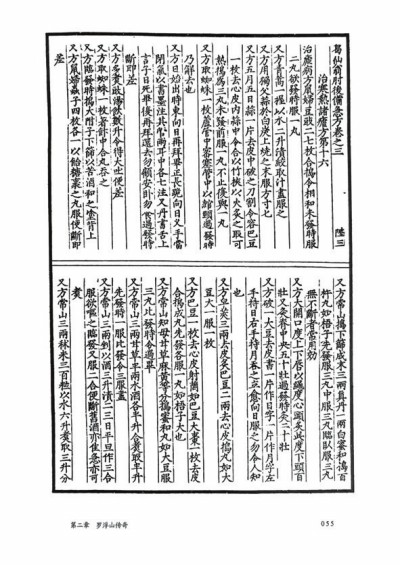 葛仙翁肘後備急方卷之三
陞三
治寒熱諸瘧方第十六
治瘧病方鼠婦豆豉二七枚合搗令相和未發時服
二丸欲發時服一丸
又方青蒿一握以水二升漬絞取汁盡服之
又方用獨父蒜於白炭上燒之末服方寸七
又方五月五日蒜一片去皮中破之刀割令容巴豆
一枚去心皮內蒜中令合以竹挾以火炙之取可
熱搗為三丸未發前服一丸不止復與一丸
又方取蜘蛛一枚蘆管中密塞管中以綰頸過發時
乃解去也
又方日始出時東向日再拜畢正長跪向日叉手當
閉氣以書墨注其管兩耳中各七注又丹書舌上
言子日死畢復再拜還去勿顧安臥勿食過發時
斷即差
又方多煮豉湯飲數升令得大吐便差
又方取蜘蛛一枚著飯中合丸吞之
又方臨發時搗大附子下篩以苦酒和之塗背上
又方鼠婦蟲子四枚各一以飴糖裹之丸服便斷即
差
又方常山搗下篩成末三兩真丹一兩白蜜和搗百
杵丸如梧子先發服三丸中服三丸臨臥服三丸
無不斷者常用効
又方大開口度上下唇以繩度心頭灸此度下頭百
壯又灸脊中央五十壯過發時灸二十壯
又方破一大豆去皮書一片作日字一片作月字左
手持日右手持月吞之立愈向日服之勿令人知
也
又方皂莢三兩去皮炙巴豆二兩去心皮搗丸如大
豆大一服一枚
又方巴豆一枚去心皮射菵如巴豆大棗一枚去皮
合搗成丸先發各服一丸如梧子大也
又方常山知母甘草麻黃等分搗蜜和丸如大豆服
三丸比發時令過畢
又方常山三兩甘草半兩水酒各半升合煮取半升
先發時一服比發令三服盡
又方常山三兩剉以酒三升漬二三日平旦作三合
服欲嘔之臨發又服二合便斷舊酒亦佳急亦可
煮
又方常山三兩秫米三百粒以水六升煮取三升分
第二章 罗浮山传奇
055